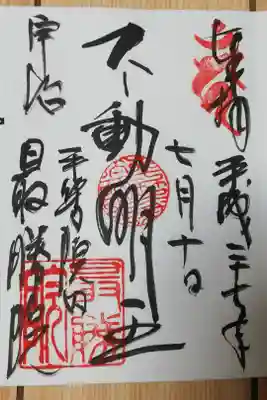 奉拝 平成二十七年
七月十日
不動明王
平等院内
宇治 最勝院